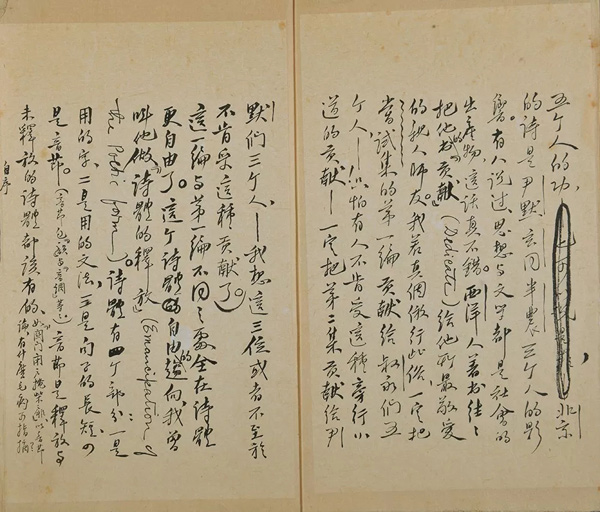 五个人的功,北京
的詩是尹默玄同半農三个人的影
響。有人说过,思想与文学都是社會的
出產物,這話真不錯。西洋人著書往々
把他的書贡献(Dedicate)给他所最敬爱
的親人師友。我若真個倣行此俗,一定把
嘗試集的第一编贡献给叔永们五
个人——只怕有人不肯受這種旁行小
道的贡献——一定把第二集贡献给尹
默们三个人——我想這三位或者不至於
不肯受這種贡献了。
這一编与第一编不同之處全在詩體
更自由了。這个詩體的自由的趨向,我曾
叫他做“詩體的釋放(Emancipation of
the Poetic form)”詩體有四个部分:一是
用的字,二是用的文法,三是句子的長短,四
是音節。音節是釋放与
未釋放的詩體都该有的。
自序